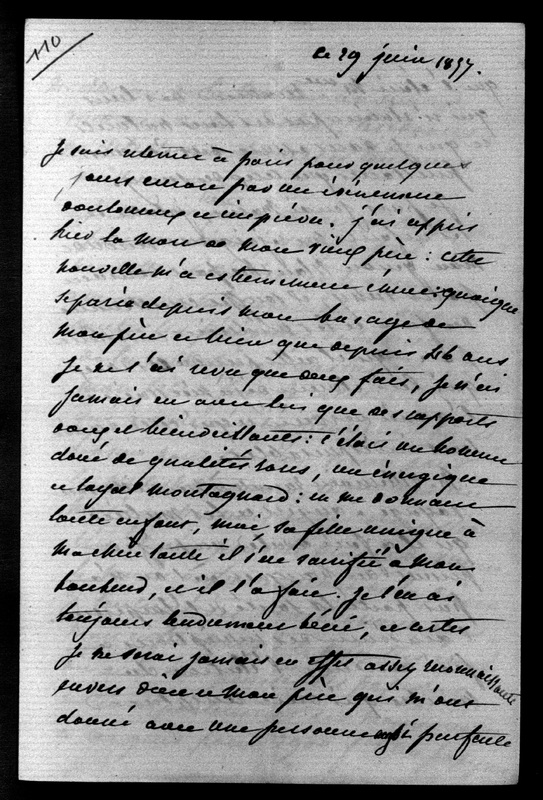 110
ce 29 juin 1857.
Je suis retenue à paris pour quelques
jours encore par un évènement
douloureux et imprévu. j'ai appris
hier la mort de mon vieux père : cette
nouvelle m'a extrêmement émue : quoique
séparée depuis mon bas age de
mon père et bien que depuis 26 ans
je ne l'ai revu que deux fois, je n'ai
jamais eu avec lui que des rapports
doux et bienveillants : c'était un homme
doué de qualités rares, un énergique
et loyal montagnard : en me donnant
toute enfant, moi, sa fille unique à
ma chère tante il s'est sacrifié à mon
bonheur, et il l'a fait. je l'en ai
toujours tendrement béni, et certes
je ne serai jamais en effet assez reconnaissante
envers dieu et mon père qui m'ont
donné avec une personne parfaite